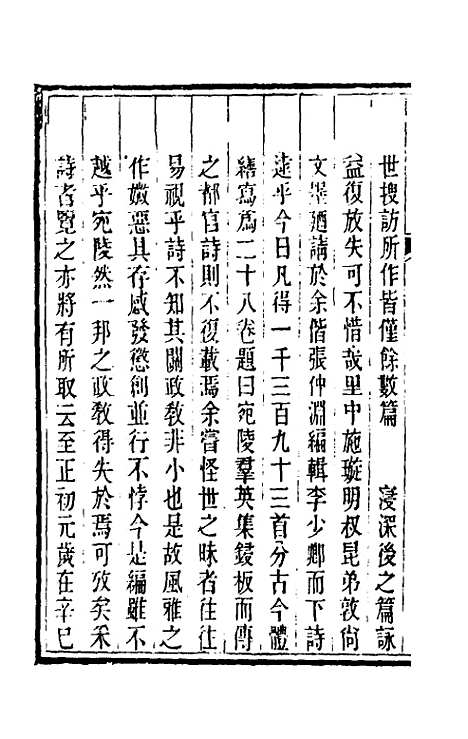 世搜訪所作皆僅餘數篇　　寖深後之篇詠
益復放失可不惜哉里中施璇明叔昆弟敦尚
文墨廼請於余偕張仲淵編輯李少卿而下詩
迄乎今日凡得一千三百九十三首分古今體
繕寫爲二十八卷題曰宛陵羣英集鋟板而傳
之都官詩則不復載焉余嘗怪世之昧者往往
易視乎詩不知其關政敎非小也是故風雅之
作媺惡具存感發懲創並行不悖今是編雖不
越乎宛陵然一邦之政敎得失於焉可攷矣釆
詩者覽之亦將有所取云至正初元歲在辛巳